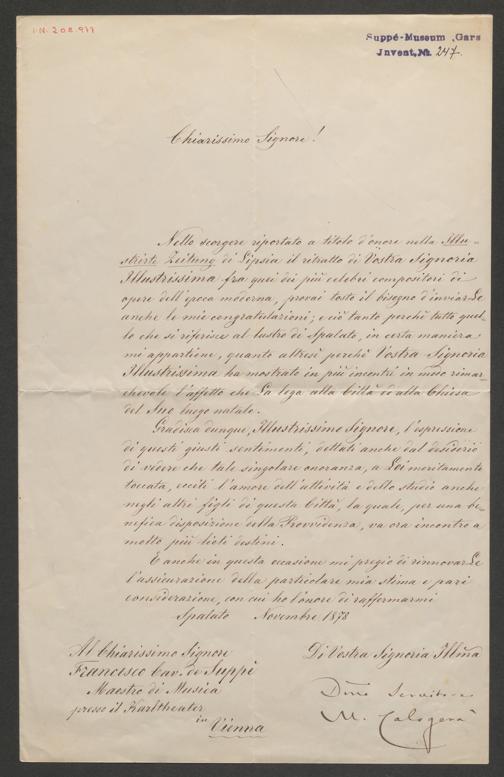 I.N. 208.977
Suppé-Museum, Gars
Invent. № 247.
Chiarissimo Signore!
Nello scorgere riportato a titolo d'onore nella Illu-
strirte Zeitung di Lipsia il ritratto di Vostra Signoria
Illustrissima fra quei dei più celebri compositori di
opere dell'epoca moderna, provai tosto il bisogno d'inviarLe
anche le mie congratulazioni; e ciò tanto perchè tutto quel-
lo che si riferisce al lustro di Spalato, in certa maniera
mi appartiene, quanto altresì perchè Vostra Signoria
Illustrissima ha mostrato in più incontri in modo rimar-
chevole l'affetto che La lega alla Città ed alla Chiesa
del Suo luogo natale.
Gradisca dunque, Illustrissimo Signore, l'espressione
di questi giusti sentimenti, dettati anche dal desiderio
di vedere che tale singolare onoranza, a Lei meritamente
toccata, ecciti l'amore dell'attività e dello studio anche
negli altri figli di questa Città, la quale, per una be-
nefica disposizione della Provvidenza, va ora incontro a
molto più lieti destini.
E anche in questa occasione mi pregio di rinnovarLe
l'assicurazione della particolare mia stima e pari
considerazione, con cui ho l'onore di raffermarmi
Spalato Novembre 1878
Al Chiarissimo Signore
Francisco Cav. de Suppè
Maestro di Musica
presso il Karltheater
in Vienna
Di Vostra Signoria Illma
Dmo Servitore
M. Calogerà